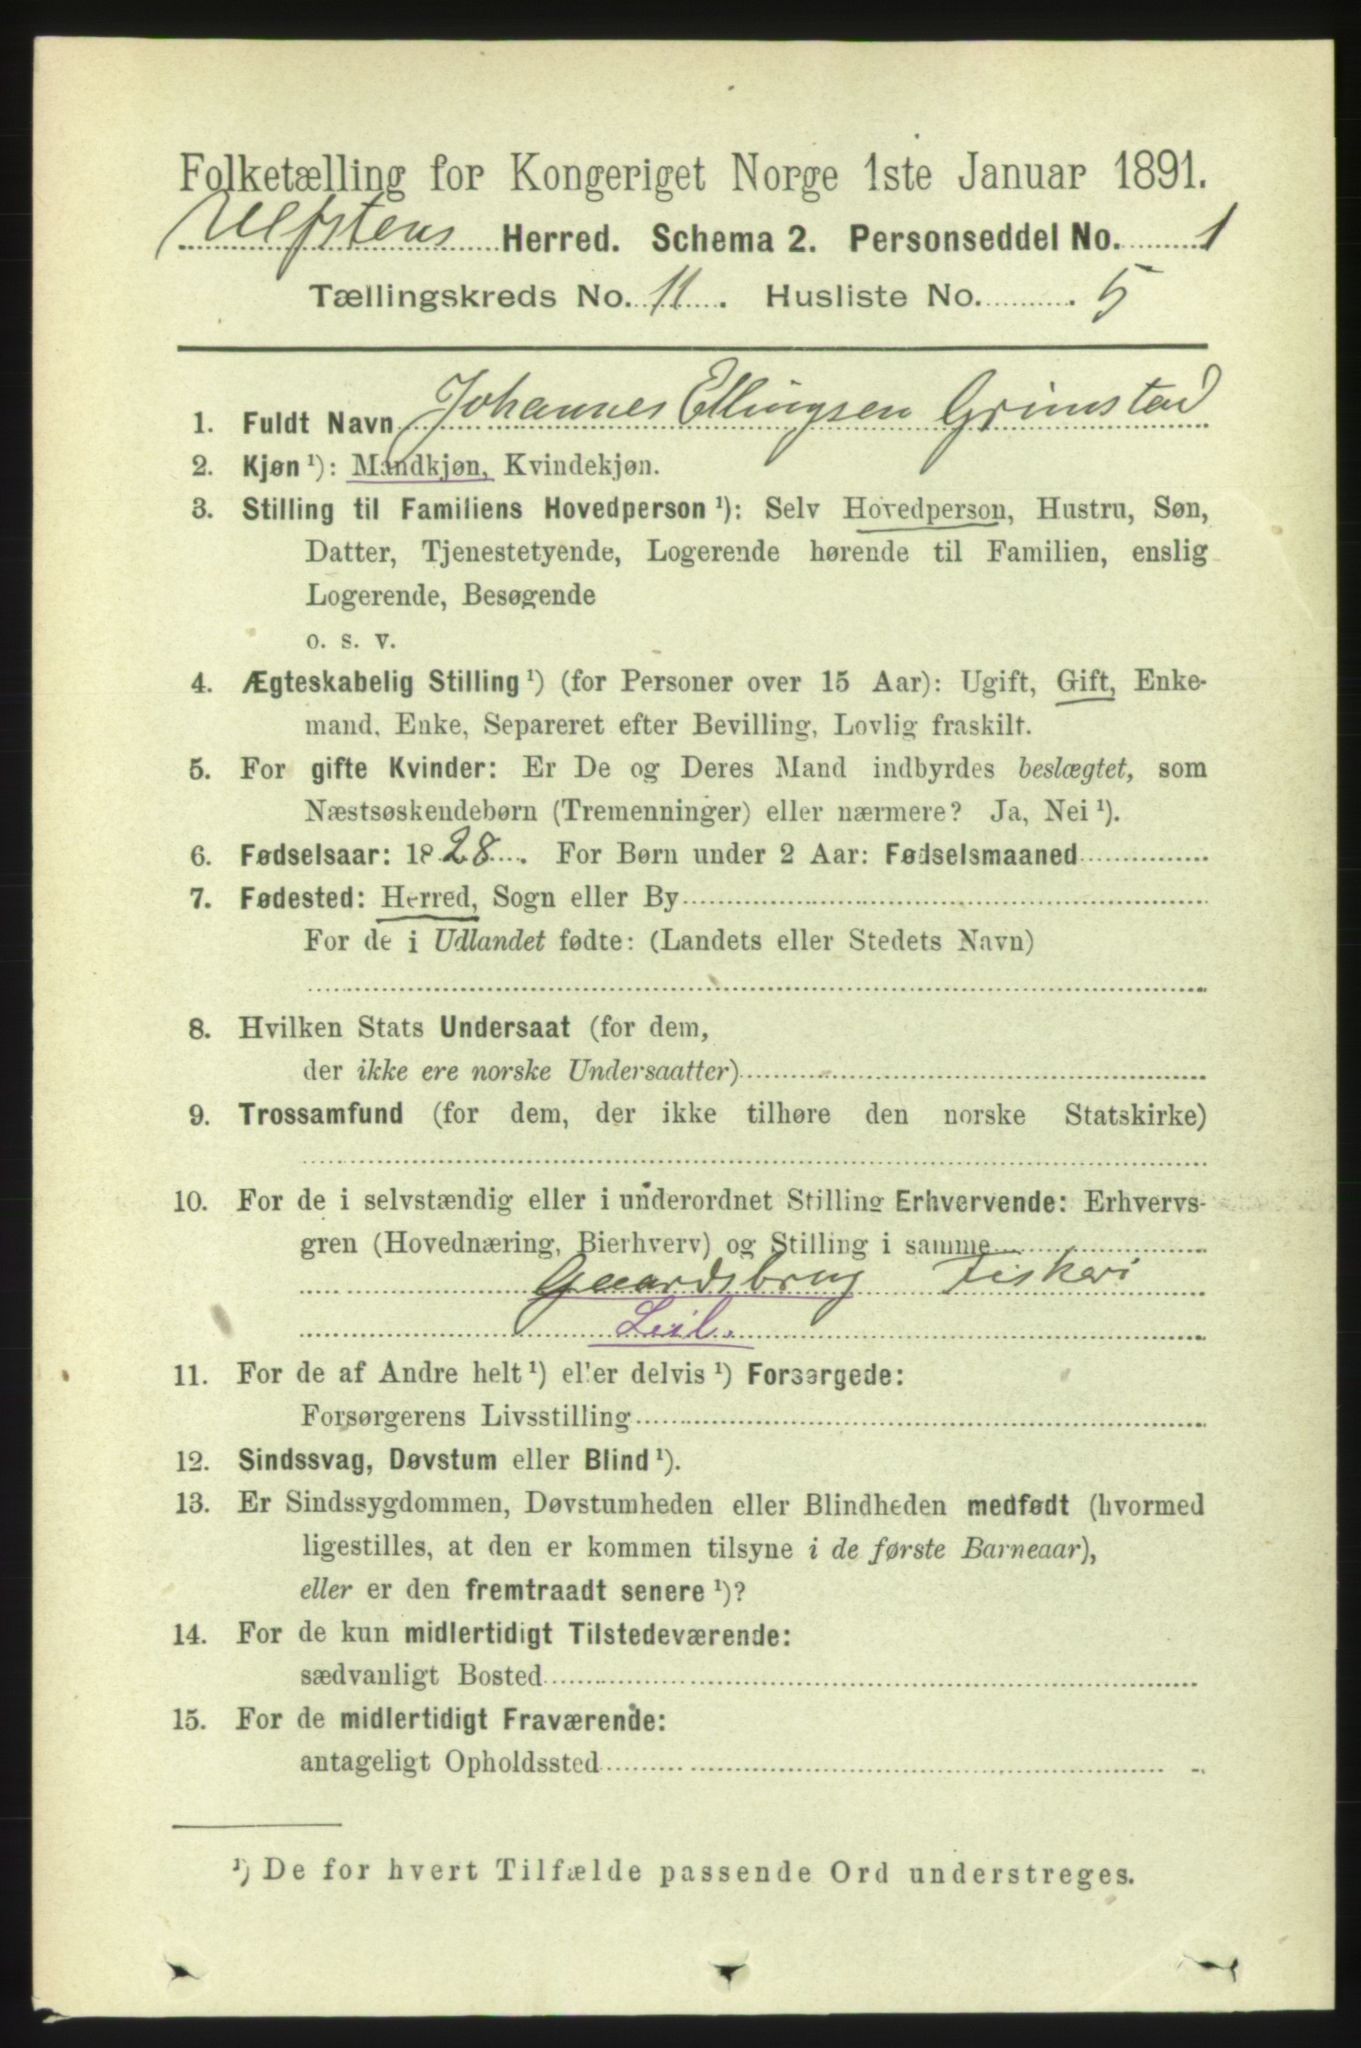 Folketælling for Kongeriget Norge 1ste Januar 1891.
Ulfstens Herred. Schema 2. Personseddel No. 1
Tællingskreds No. 11. Husliste No. 5
1. Fuldt Navn Johannes Ellingsen Grimstad
2. Kjøn ¹): Mandkjøn, Kvindekjøn.
3. Stilling til Familiens Hovedperson ¹): Selv Hovedperson, Hustru, Søn,
Datter, Tjenestetyende, Logerende hørende til Familien, enslig
Logerende, Besøgende
o. s. v.
4. Ægteskabelig Stilling ¹) (for Personer over 15 Aar): Ugift, Gift, Enke-
mand, Enke, Separeret efter Bevilling, Lovlig fraskilt.
5. For gifte Kvinder: Er De og Deres Mand indbyrdes beslægtet, som
Næstsøskendebørn (Tremenninger) eller nærmere? Ja, Nei ¹).
6. Fødselsaar: 1828. For Børn under 2 Aar: Fødselsmaaned
7. Fødested: Herred, Sogn eller By
For de i Udlandet fødte: (Landets eller Stedets Navn)
8. Hvilken Stats Undersaat (for dem,
der ikke ere norske Undersaatter)
9. Trossamfund (for dem, der ikke tilhøre den norske Statskirke)
10. For de i selvstændig eller i underordnet Stilling Erhvervende: Erhvervs-
gren (Hovednæring, Bierhverv) og Stilling i samme
Gaardsbrug Fiskeri
Leil.
11. For de af Andre helt ¹) eller delvis ¹) Forsørgede:
Forsørgerens Livsstilling
12. Sindssvag, Døvstum eller Blind ¹).
13. Er Sindssygdommen, Døvstumheden eller Blindheden medfødt (hvormed
ligestilles, at den er kommen tilsyne i de første Barneaar),
eller er den fremtraadt senere ¹)?
14. For de kun midlertidigt Tilstedeværende:
sædvanligt Bosted
15. For de midlertidigt Fraværende:
antageligt Opholdssted
¹) De for hvert Tilfælde passende Ord understreges.